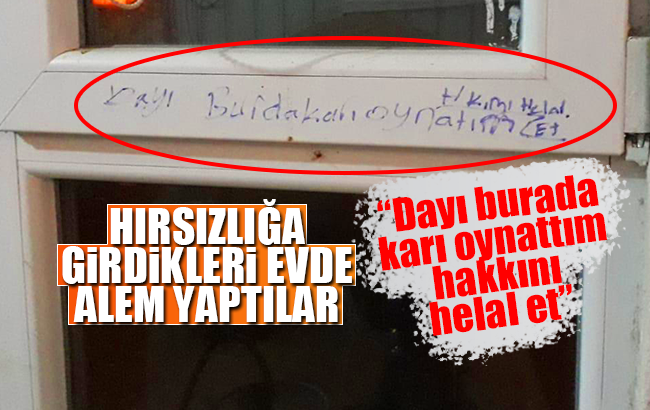 Dayı Burdakarı oynatım
Helal.
Et
HIRSIZLIĞA
GİRDİKLERİ EVDE
ALEM YAPTILAR
“Dayı burada
karı oynattım
hakkını
helal et”